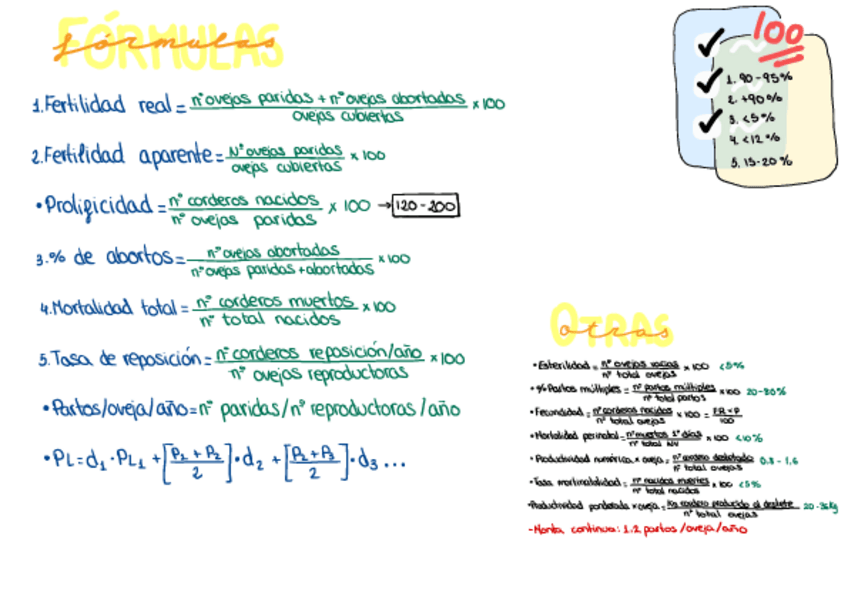 FÓRMULAS
fórmulas
1. Fertilidad real = nº ovejas paridas + nº ovejas abortadas / ovejas cubiertas x 100
2. Fertilidad aparente = Nº ovejas paridas / ovejas cubiertas x 100
• Prolificidad = nº corderos nacidos / nº ovejas paridas x 100 → 120 - 200
3. % de abortos = nº ovejas abortadas / nº ovejas paridas + abortadas x 100
4. Mortalidad total = nº corderos muertos / nº total nacidos x 100
5. Tasa de reposición = nº corderos reposición/año / nº ovejas reproductoras x 100
• Partos/oveja/año = nº paridas / nº reproductoras / año
• PL = d1 · PL1 + [P1 + P2 / 2] · d2 + [P2 + P3 / 2] · d3 ...
100
1. 90 - 95 %
2. +90 %
3. <5 %
4. <12 %
5. 15-20 %
OTRAS
otras
• Esterilidad = nº ovejas vacías / nº total ovejas x 100 <5%
• % Partos múltiples = nº partos múltiples / nº total partos x 100 20-80%
• Fecundidad = nº corderos nacidos / nº total ovejas x 100 = FR x P / 100
• Mortalidad perinatal = nº muertos 1os días / nº total NV x 100 <10%
• Productividad numérica x oveja = nº cordero destetado / nº total ovejas 0.8 - 1,6
• Tasa mortinatalidad = nº nacidos muertos / nº total nacidos x 100 <5%
• Productividad ponderada x oveja = Kg cordero producido al destete / nº total ovejas 20-36Kg
- Monta continua: 1.2 partos/oveja/año